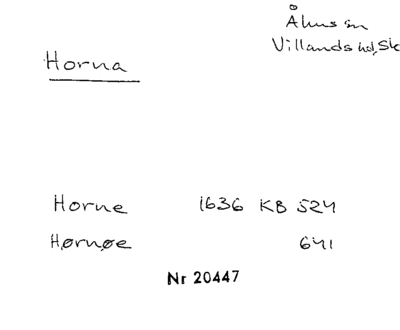 Åhus sn
Villands hd, Sk
Horna
Horne 1636 KB 524
Hørnøe 641
Nr 20447